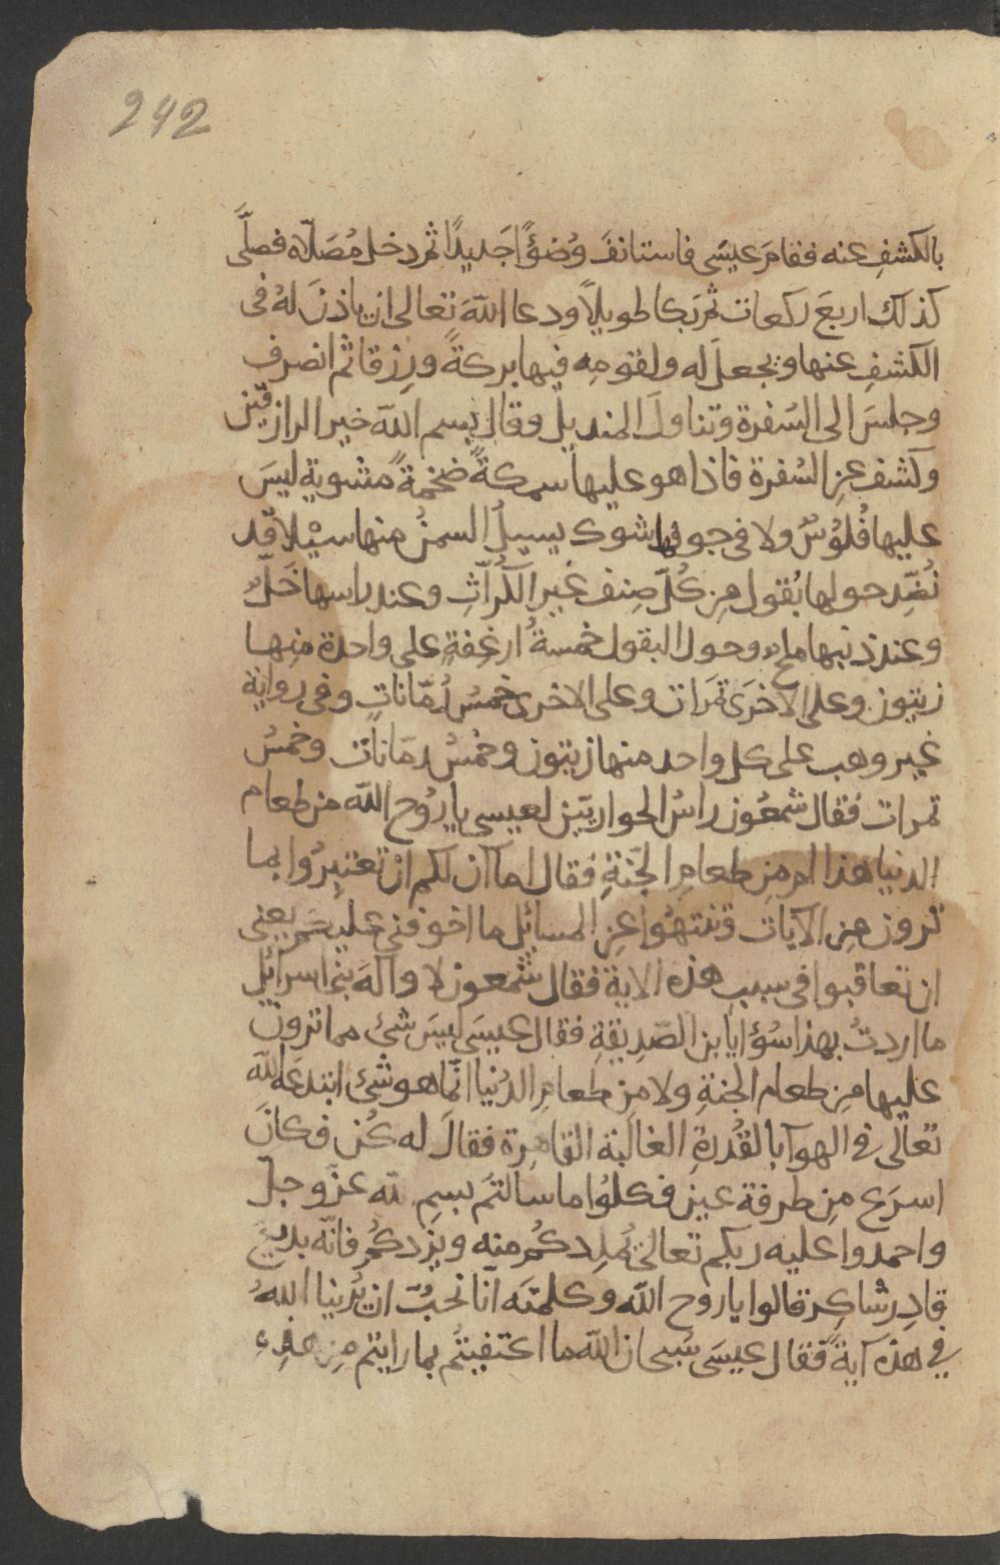 242
بالكشفِ عنه فقامَ عيسَى فاستانفَ وُضؤًا جَديدًا ثم دخل مُصَلّاه فصلَّى
كذلك اربعَ ركعات ثم بَكا طويلًا ودعا اللّهَ تعالى ان ياذنَ لهُ فى
الكشفِ عنها ويجعل له ولقومِه فيها بركةً ورِزقا ثم انصرف
وجلسَ الى السُفرة وتناولَ المنديلَ وقال بسم اللّه خير الرازقين
وكشف عن السُفرة فاذا هو عليها سمكةً ضخمةً مشوية ليسَ
عليها فُلُوسٌ ولا فى جوفها شوك يسيلُ السمنُ منها سيْلا قد
نُضِّد حولها بُقول مِن كُلّ صِنف غير الكُرّاثِ وعند راسها خَلٌّ
وعند ذنبها ملح وحول البقول خمسةُ ارغِفةٍ على واحدة مِنها
زيتون وعلى الاخرَى تمَرات وعلى الاخرى خمسُ رُمّاناتٍ وفى رواية
غير وهب على كل واحد منها زيتون وخمسُ رمّانات وخمسُ
تمرات فقال شمعُون راسُ الحواريّين لعيسى يا رُوح اللّه من طعام
الدنيا هذا ام مِن طعامِ الجنّةِ فقال اما آن لكم انْ تعتبِرُوا بما
ترون مِن الآيات وتنتهُوا عِن المسائِل ما اخوفنى عليكم يعنى
ان تعاقبوا فى سبب هذه الاية فقال شمعون لا والهَ بنى اسرآئل
ما اردتُ بهذا سُؤا يا بن الصّدِيقةِ فقال عيسَى ليسَ شئ مما ترون
عليها مِن طعام الجنةِ ولا مِن طعامِ الدُنيا انّما هو شئ ابتدعَه اللّه
تعالى فى الهوآ بالقُدرةِ الغالبة القاهِرة فقالَ له كُن فكانَ
اسرَع مِن طرفة عين فكلوُا ما سالتمُ بسمِ لله عزّ وجلّ
واحمدوا عليه ربكم تعالى يُمدِدكُم منه ويزِدكُم فانّه بديعٌ
قادِر شاكِر قالوا يا روح اللّه وكلمتَه انّا نحبُّ ان يُرينا اللّهُ
في هذه آيةً فقال عيسَى سُبحان اللّه ما اكتفيتُم بما رايتم مِن هذِهِ